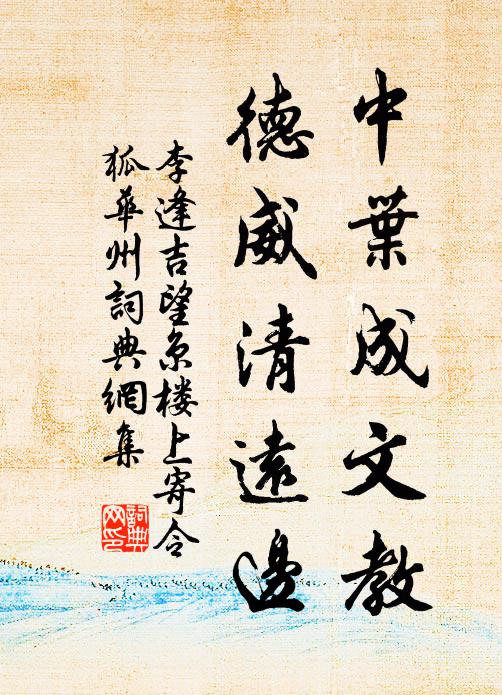 中葉成文教
德威清遠邊
李逢吉望京楼上寄令
狐華州詞典網集
詞典
网印